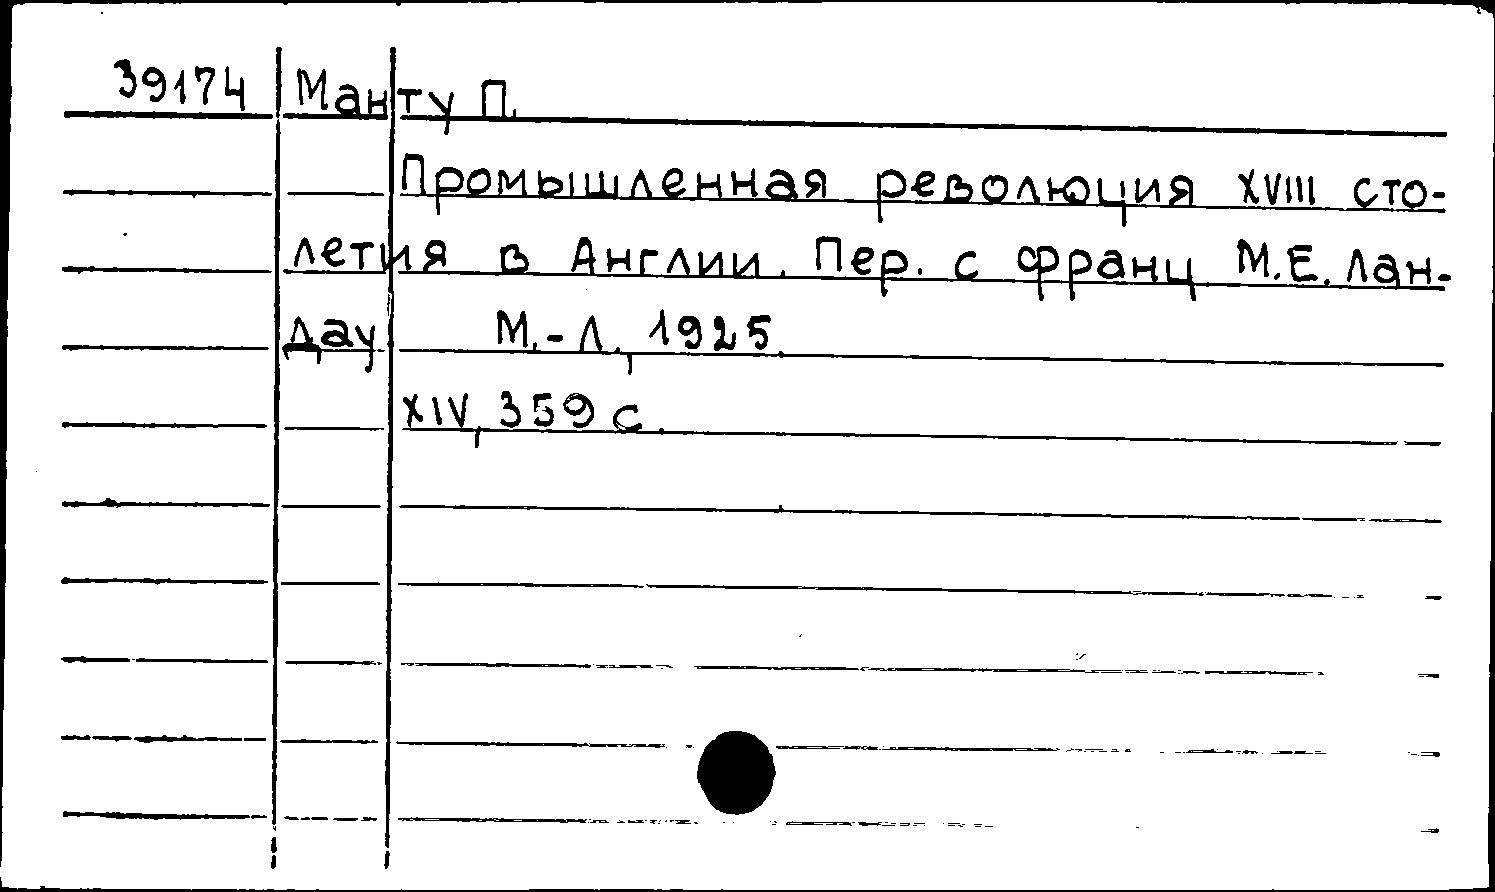 39174 Манту П.
Промышленная революция XVIII сто-
летия в Англии. Пер. с франц М.Е. Лан-
дау М.-Л., 1925.
XIV, 359 с.